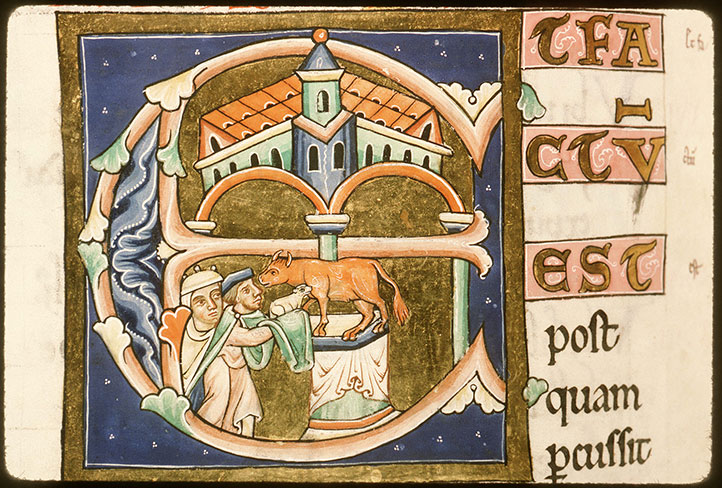 TFA
I
CTV
EST
post
quam
pcussit